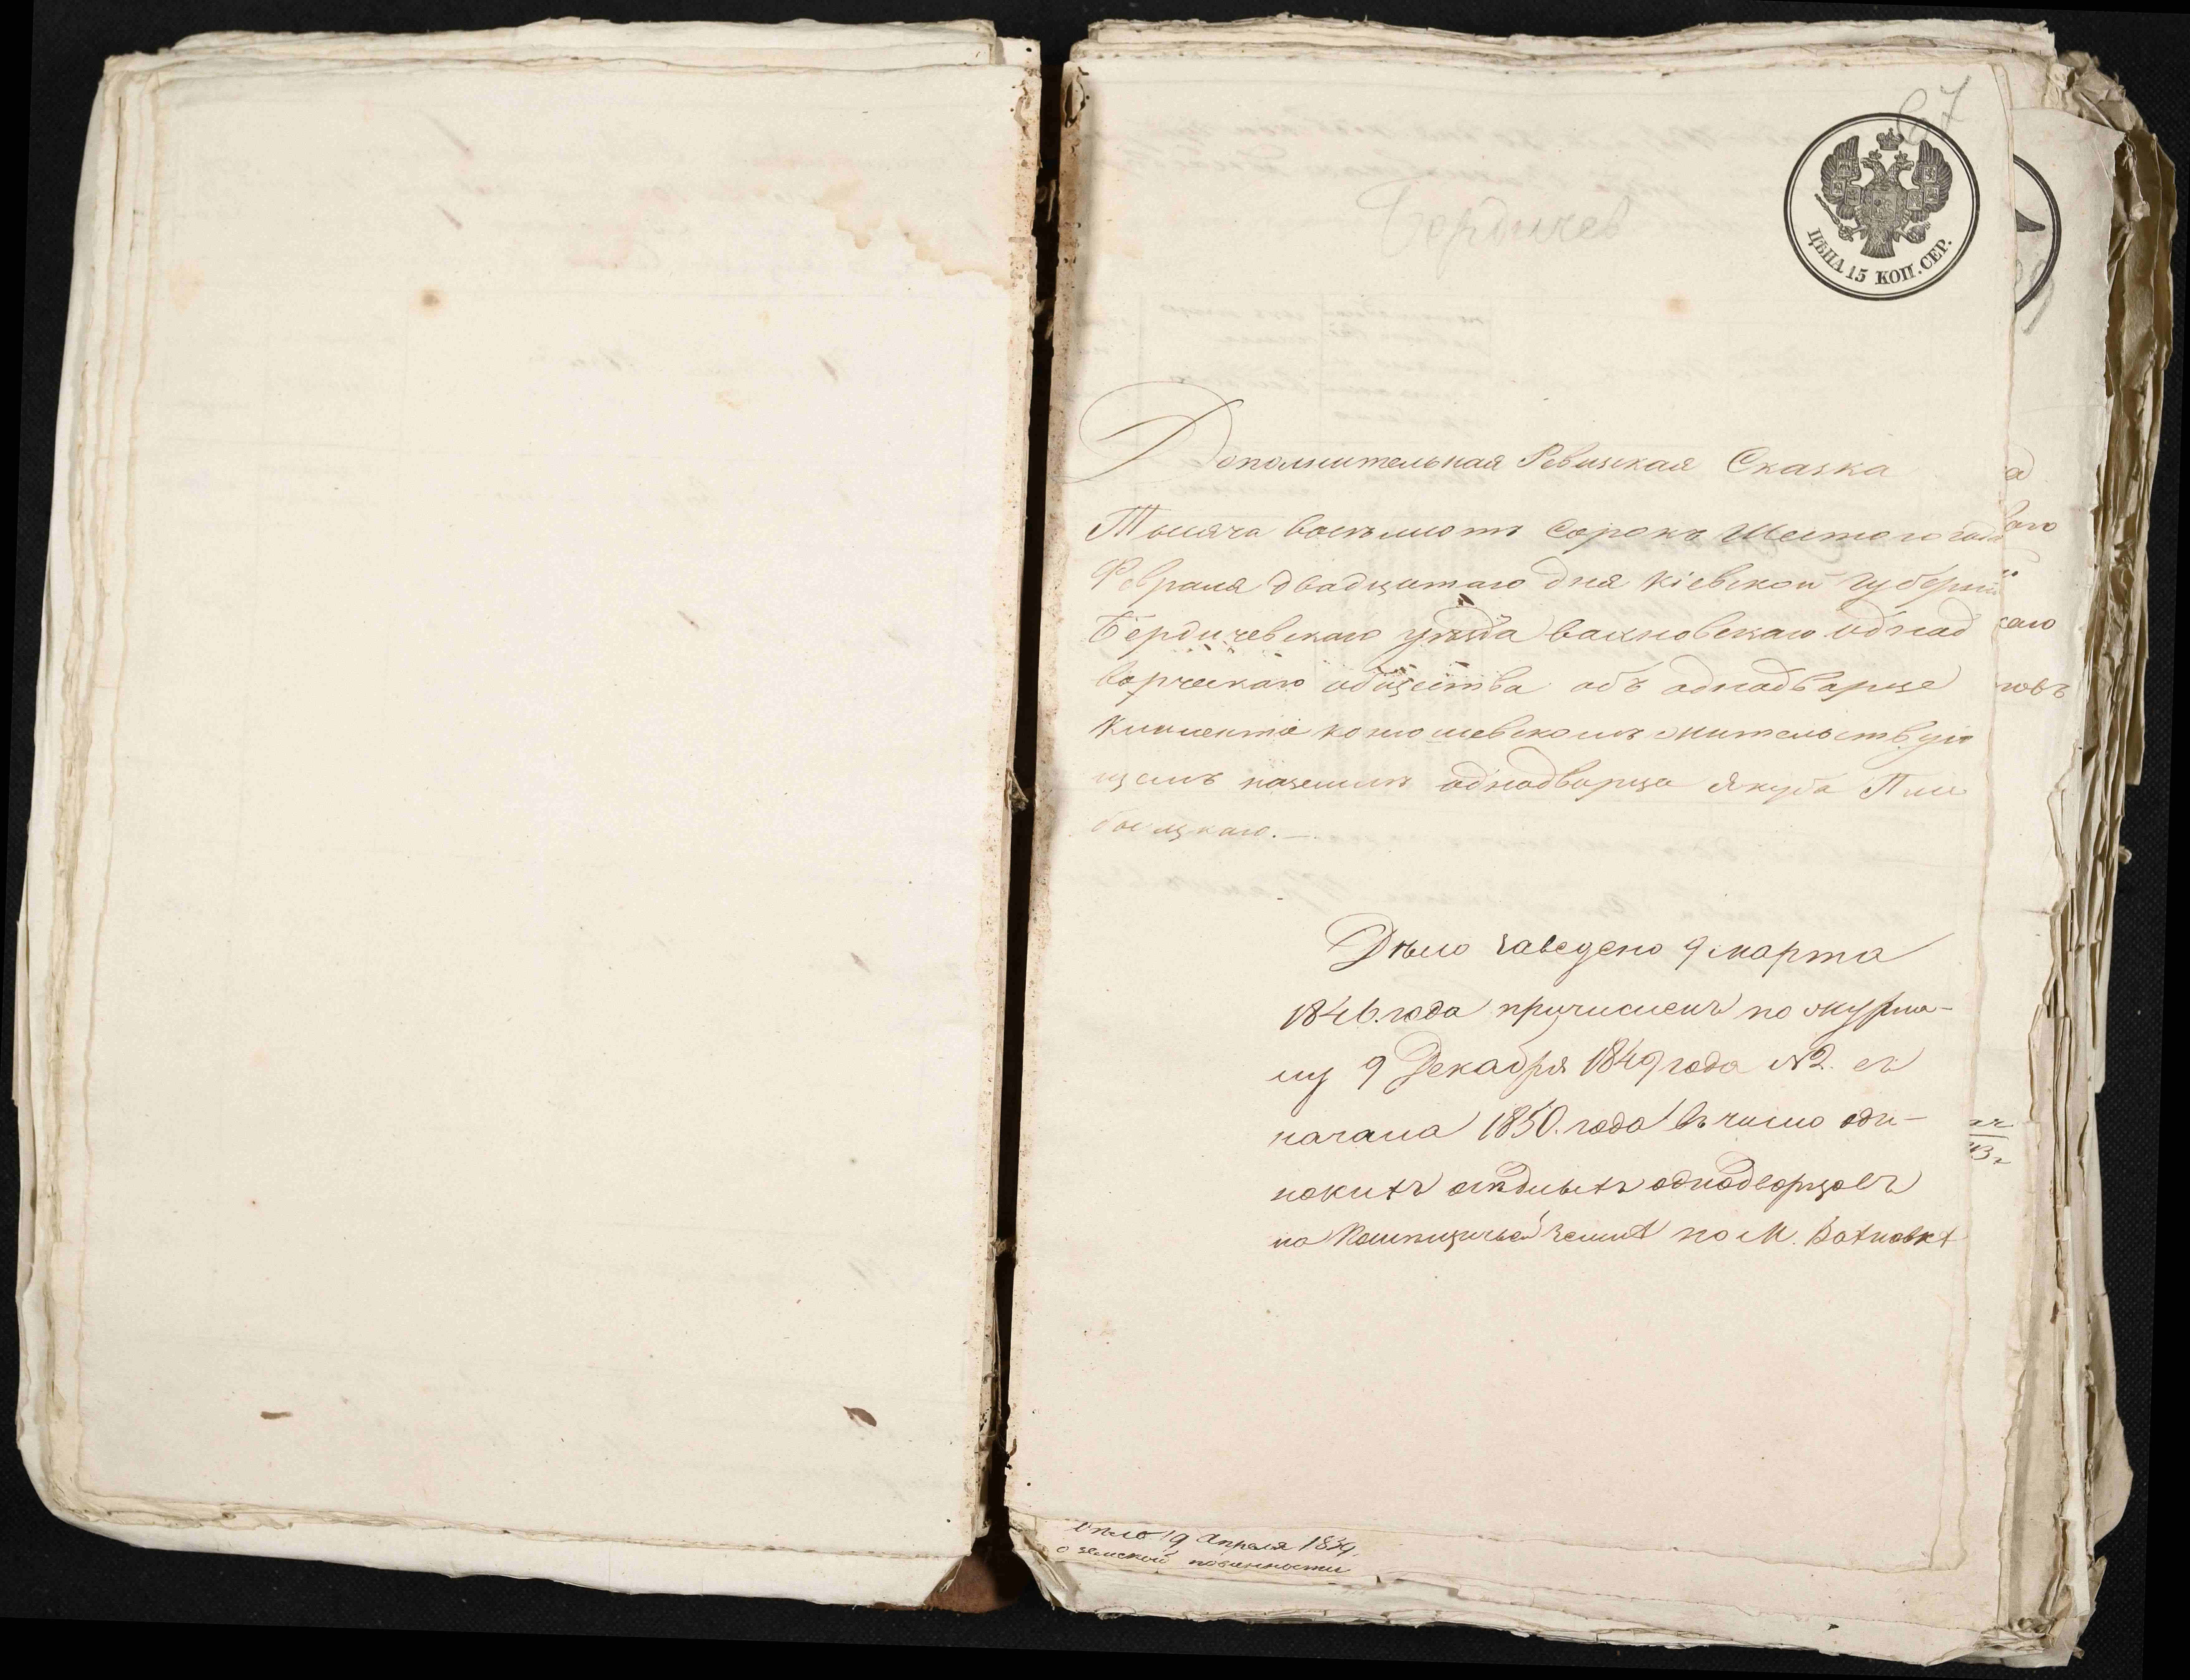 67
Бердичев
ЦѢНА 15 КОП. СЕР.
Дополнительная Ревизская Сказка
Тысяча восемьсотъ Сорокъ Шестого года
Февраля двадцатаго дня Кіевской Губерніи
Бердичевскаго уѣзда Вахновскаго однод
ворческаго общества объ однодворце
Климентіе Конюшевскомъ жительствую
щемъ наземли однодворца Якуба
Дѣло заведено 9 марта
1846. года причисленъ по журна-
лу 9 Декабря 1849 года №2. съ
начала 1850. года въ число оди-
нокихъ осѣдлыхъ однодворцовъ
на Помѣщичьей землѣ по М. Вахновкѣ
дѣло 19 Апреля 1849.
о земской повинности